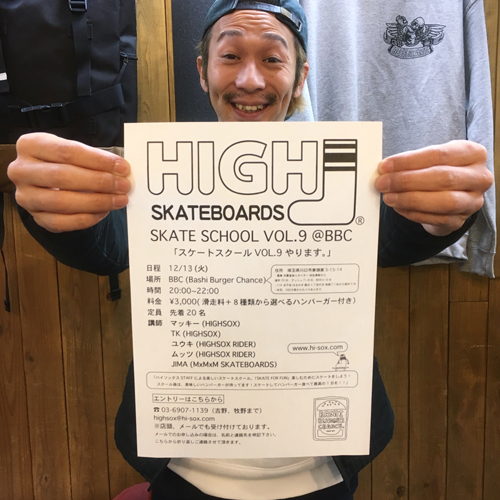 HIGH
SKATEBOARDS ®
SKATE SCHOOL VOL.9 @BBC
「スケートスクール VOL.9 やります。」
日程 12/13(火)
場所 BBC (Bashi Burger Chance)
時間 20:00~22:00
料金 ¥3,000( 滑走料+8種類から選べるハンバーガー付き)
定員 先着20名
講師 マッキー (HIGHSOX)
TK (HIGHSOX)
ユウキ (HIGHSOX RIDER)
ムッツ (HIGHSOX RIDER)
JIMA (MxMxM SKATEBOARDS)
www.hi-sox.com
エントリーはこちらから
☎ 03-6907-1139 (吉野、牧野まで)
highsox@hi-sox.com
※店頭、メールでも受け付けております。
メールでのお申し込みの場合は、名前と連絡先を明記下さい。
こちらから折り返しご連絡させて頂きます。